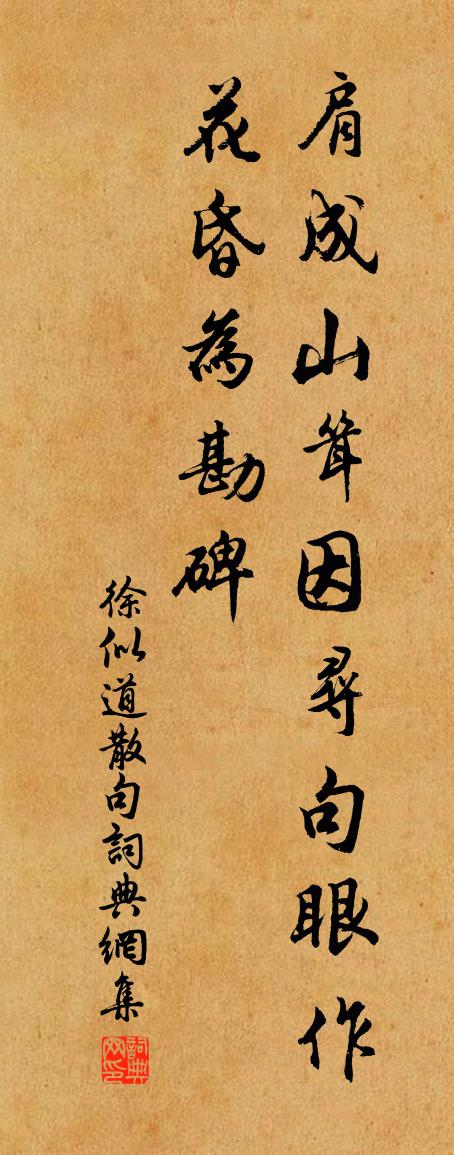 肩成山耸因尋句眼作
花昏為勘碑
徐似道散句詞典網集
詞典网印